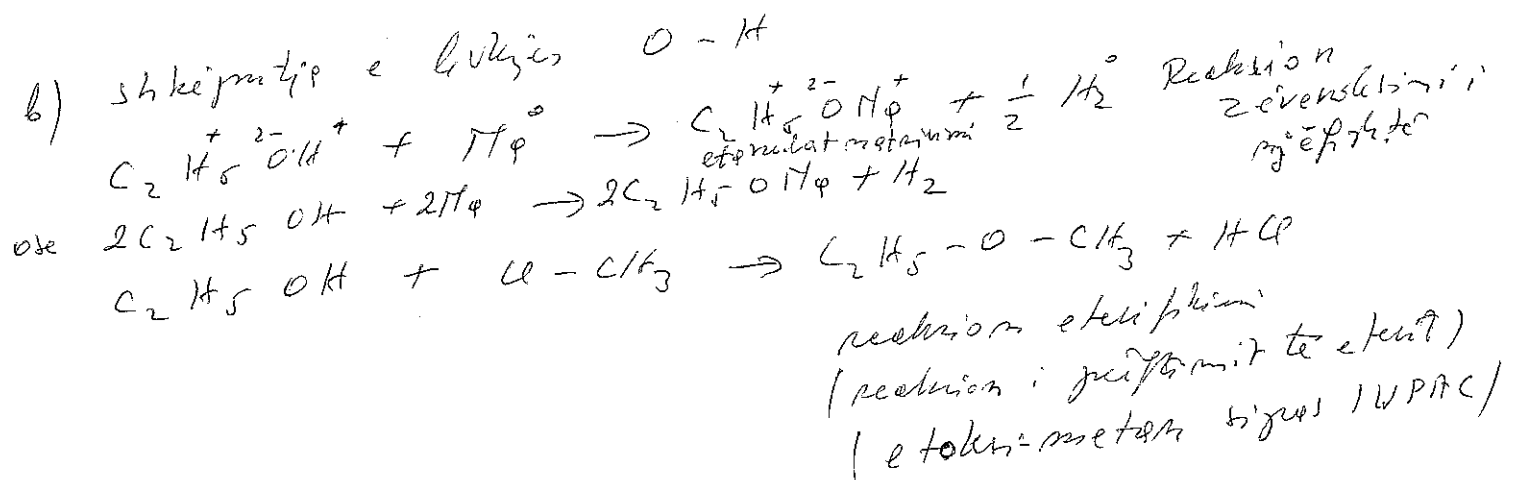 b) shkëputje e lidhjes O – H
C₂H₅⁺ ²⁻OH⁺ + Na° → C₂H₅⁺ ²⁻ONa⁺ + ½ H₂° Reaksion
etanolat natriumi zëvendësimi i
njëfishtë
ose 2C₂H₅OH + 2Na → 2C₂H₅ONa + H₂
C₂H₅OH + Cl – CH₃ → C₂H₅ – O – CH₃ + HCl
reaksion eterifikimi
(reaksion i përftimit të eterit)
(etoksi-metan sipas IUPAC)